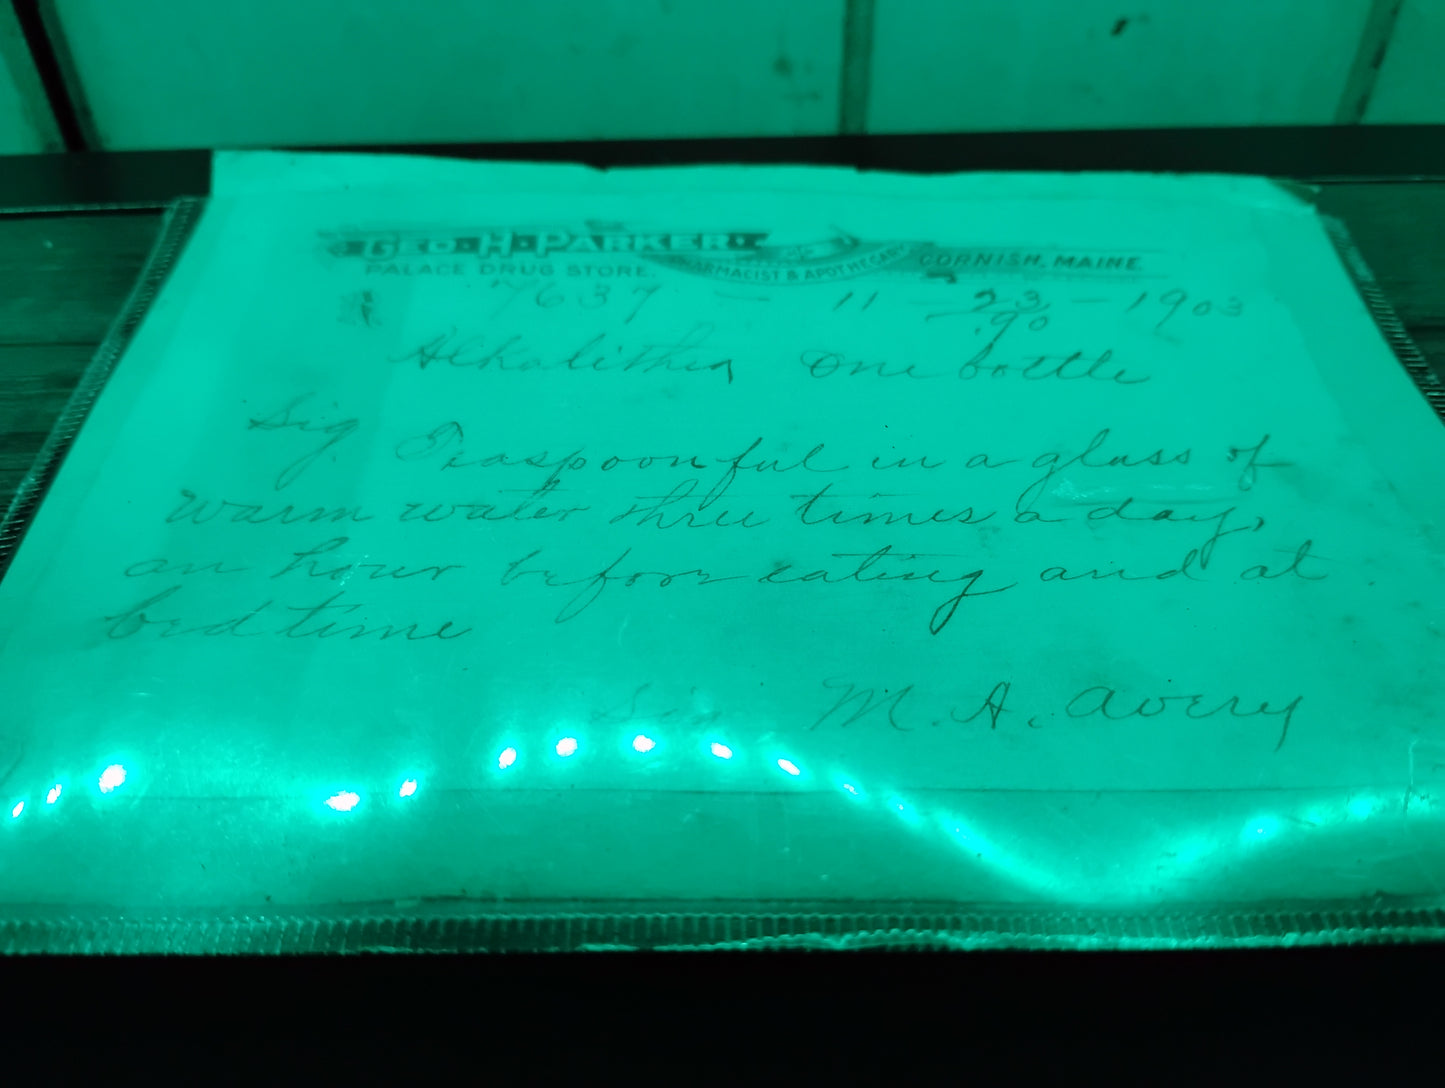 GEO. H. PARKER,
PHARMACIST & APOTHECARY
CORNISH, MAINE.
PALACE DRUG STORE.
7637 — 11 — 23 — 1903
.90
Alkalithia one bottle
Sig. Teaspoonful in a glass of
warm water three times a day,
an hour before eating and at
bedtime
Sig M. A. Avery